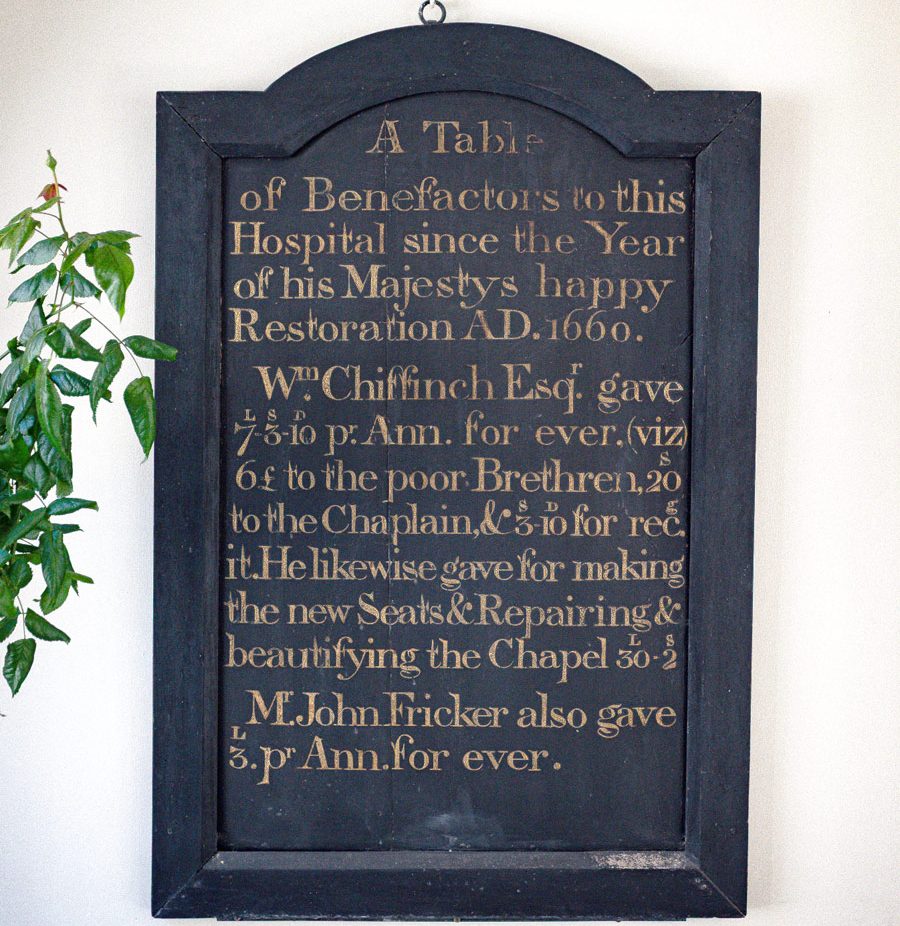 A Table
of Benefactors to this
Hospital since the Year
of his Majestys happy
Restoration AD. 1660.
Wᵐ. Chiffinch Esqʳ. gave
L S D
7-3-10 pʳ. Ann. for ever. (viz)
6£ to the poor Brethren, 20ˢ
to the Chaplain, & 3ˢ-10ᴰ for recᵍ.
it. He likewise gave for making
the new Seats & Repairing &
beautifying the Chapel 30ᴸ-2ˢ
Mʳ. John Fricker also gave
L
3. pʳ Ann. for ever.